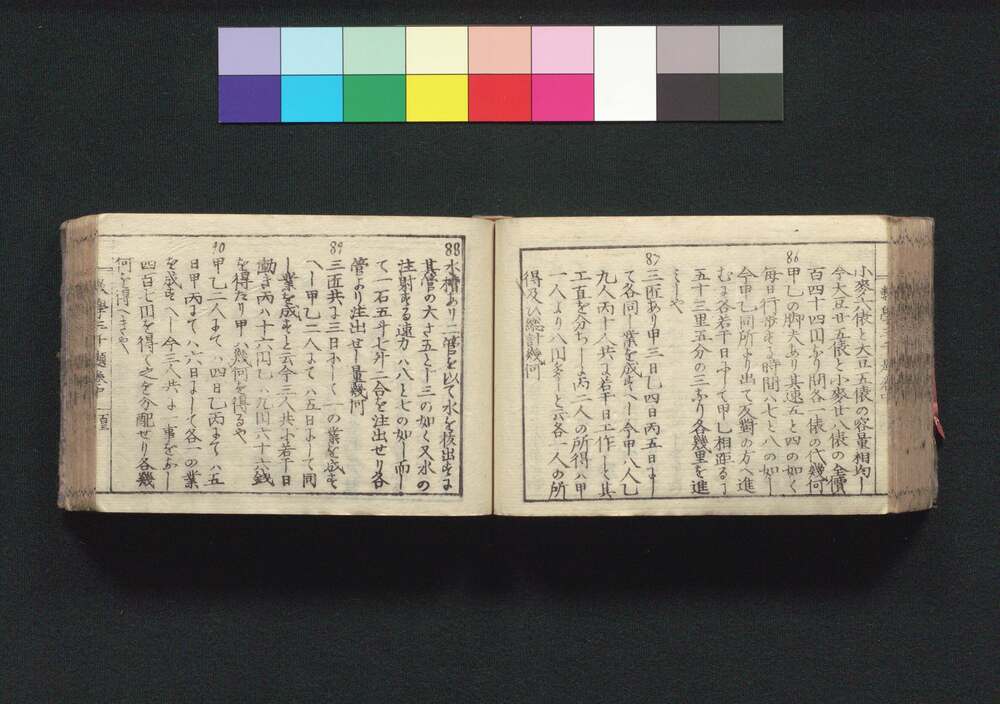 小麥六俵と大豆五俵の容量相均し
今大豆廿五俵と小麥廿八俵の全價
百四十四円なり問各一俵の代幾何
86
甲乙の脚夫あり其速五と四の如く
毎日行歩する時間ハ七と八の如し
今甲乙同所より出て反對の方へ進
むに各若干日にして甲乙相距る丁
五十三里五分の三なり各幾里を進
みしや
87
三匠あり甲三日乙四日丙五日にし
て各同し業を成すへし今甲八人乙
九人丙十人共に若干日工作して其
工直を分ちしに丙二人の所得ハ甲
一人より八円多しと云各一人の所
得及ひ総計幾何
88
水槽あり二管を以て水を移出すに
其管の大さ五と十三の如く又水の
注射する速力ハ八と七の如し而し
て一石五斗七升二合を注出せり各
管より注出せし量幾何
89
三匠共に三日にして一の業を成す
へし甲乙二人にてハ五日にして同
し業を成すと云今三人共に若干日
働き丙ハ十六円乙ハ九円六十六銭
を得たり甲ハ幾何を得るや
90
甲乙二人にてハ四日乙丙にてハ五
日甲丙にてハ六日にして各一の業
を成すへし今三人共に一事をなし
四百七円を得て之を分配せり各幾
何を得へきや
數學三千題巻中